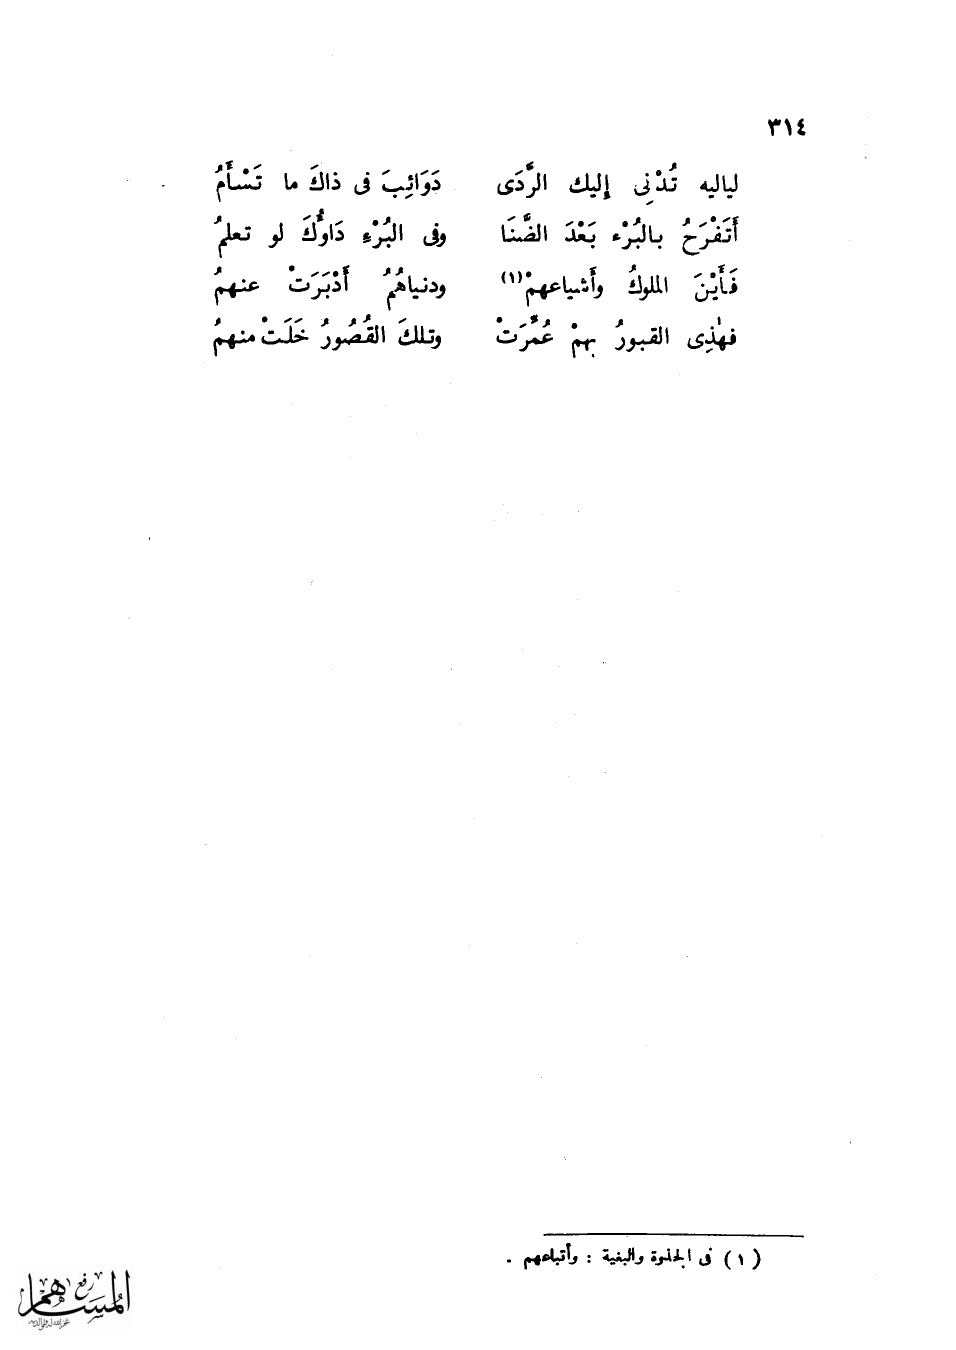 ٣١٤
لياليه تُدْنِى إليك الرَّدَى دَوَائِبَ فى ذاكَ ما تَسْأَمُ
أَتَفْرَحُ بالبُرْء بَعْدَ الضَّنَا وفى البُرْءِ دَاوُّكَ لو تعلمُ
فَأَيْنَ الملوكُ وأَشياعهمْ(١) ودنياهُمُ أَدْبَرَتْ عنهمُ
فهٰذِى القبورُ بهمْ عُمِّرَتْ وتلكَ القُصُورُ خَلَتْ منهمُ
(١) فى الجذوة والبغية : وأتباعهم .
رفع
المساهم